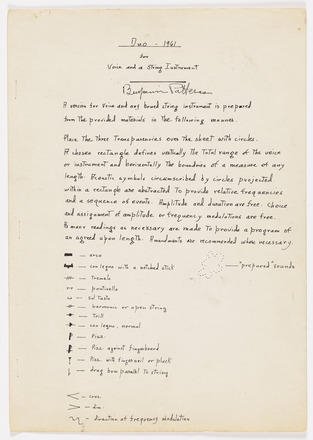 Duo - 1961
for
Voice and a String Instrument
Benjamin Patterson
A version for voice and any bowed string instrument is prepared
from the provided materials in the following manner.
Place the three transparencies over the sheet with circles.
A chosen rectangle defines vertically the total range of the voice
or instrument and horizontally the boundaries of a measure of any
length. Acoustic symbols circumscribed by circles projected
within a rectangle are abstracted to provide relative frequencies
and a sequence of events. Amplitude and duration are free. Choice
and assignment of amplitude or frequency modulations are free.
As many readings as necessary are made to provide a program of
an agreed upon length. Amendments are recommended when necessary.
— arco
— con legno with a notched stick
— "prepared" sounds
— tremolo
— ponticello
— sul tasto
— harmonic or open string
— trill
— con legno, normal
— Pizz.
— Pizz. against fingerboard
— Pizz. with fingernail or pluck
— drag bow parallel to string
< — cres.
> — dim.
— direction of frequency modulation